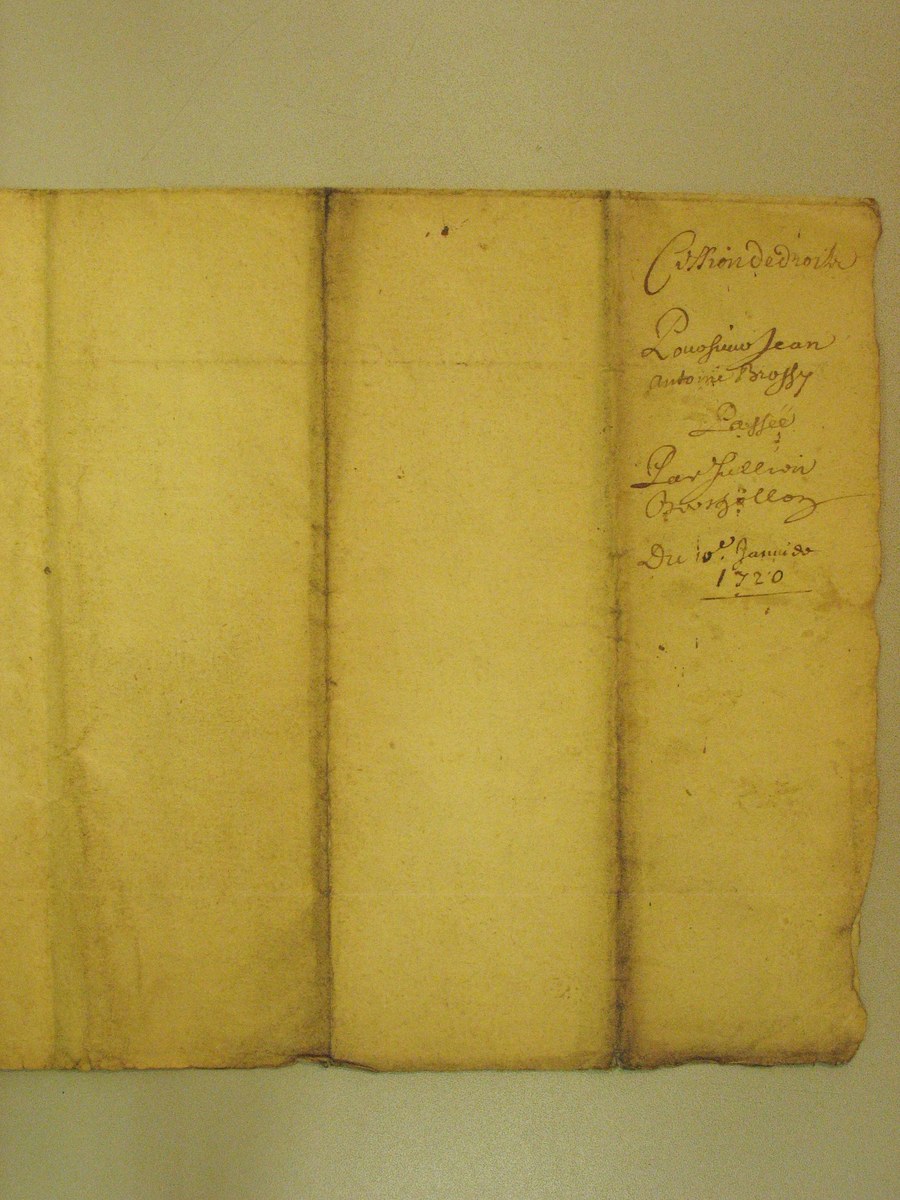 Cession de droits
Pour sieur Jean
Antoine Brossy
Passée
Par Jullien
Du 10e. Janvier
1720